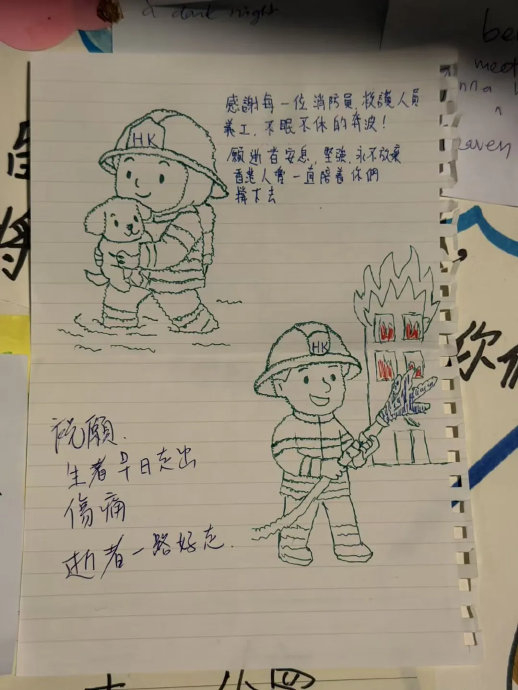 a dark night
感謝每一位消防員,救護人員
義工,不眠不休的奔波!
願逝者安息,堅強,永不放棄
香港人會一直陪着你們
撐下去
HK
HK
祝願.
生者早日走出
傷痛
逝者一路好走.
將
你